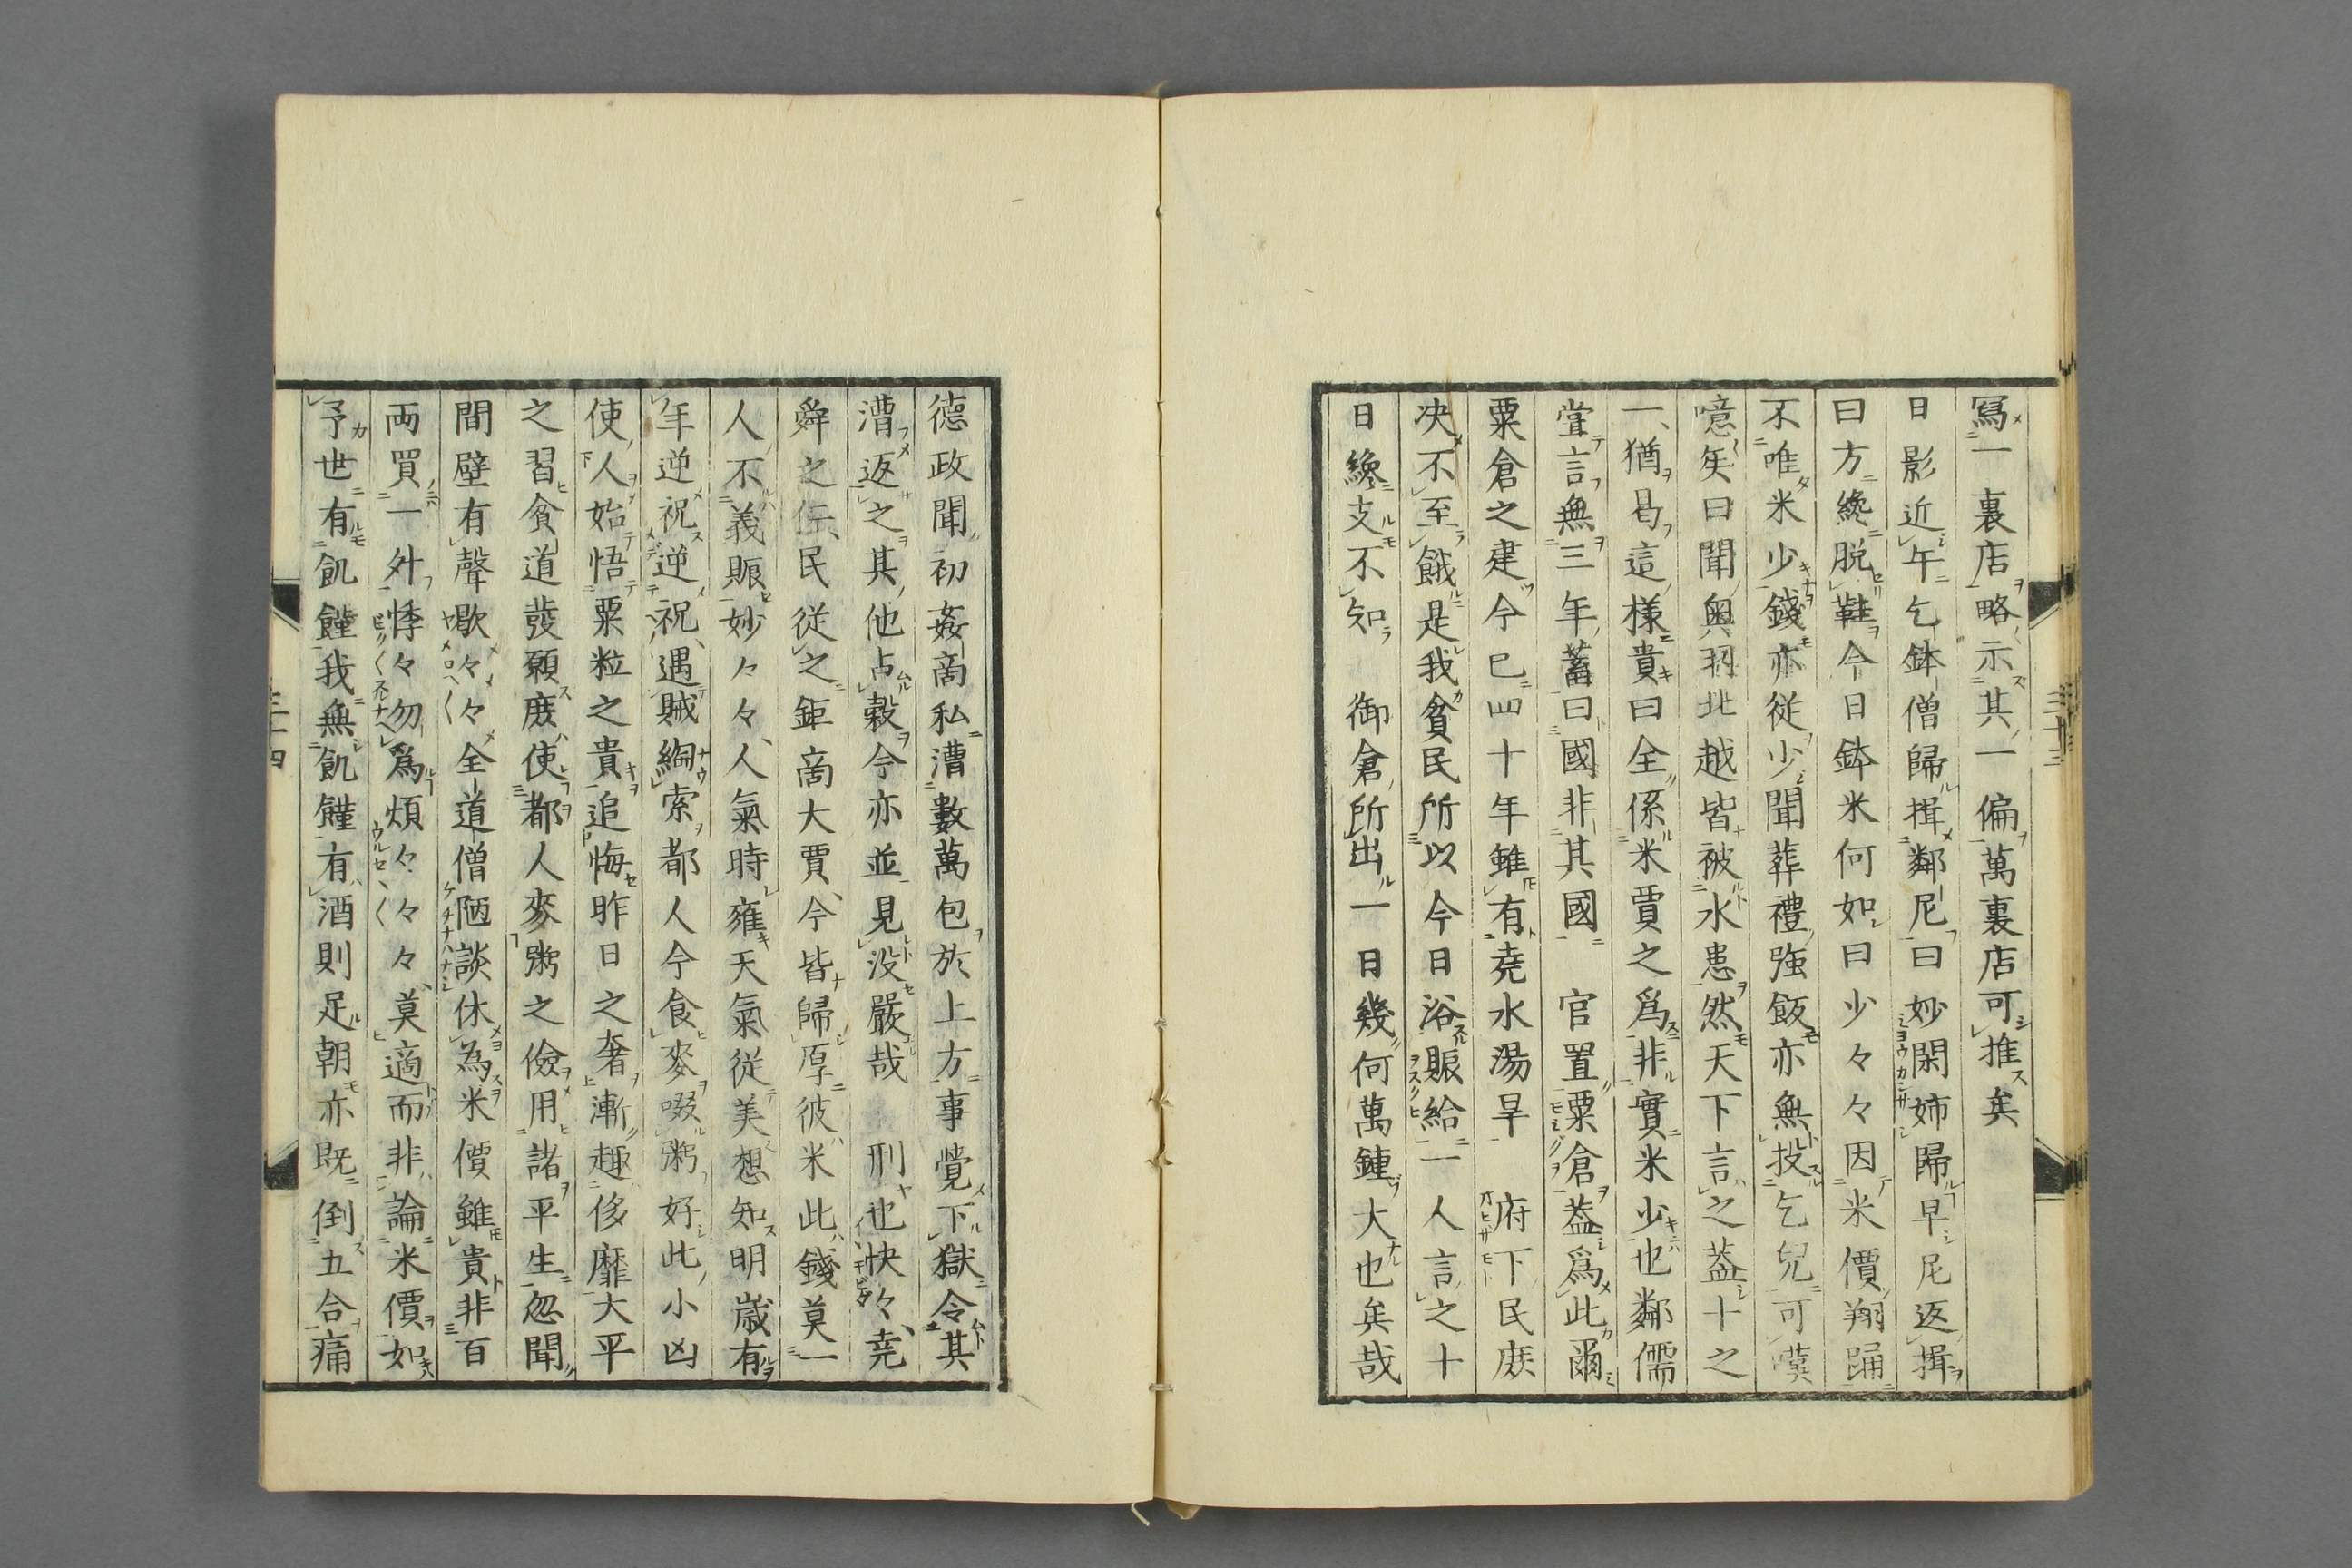 寫一裏店略示其一偏萬裏店可推矣
日影近午乞鉢僧歸揖鄰尼曰妙閑姉歸早尼返揖
曰方纔脱鞋今日鉢米何如曰少々々因米價翔踊
不唯米少錢亦從少聞葬禮強飯亦無投乞兒可嘆
噫矣曰聞奥羽北越皆被水患然天下言之蓋十之
一猶曷這樣貴曰全係米賈之爲非實米少也鄰儒
甞言無三年蓄曰國非其國　官置粟倉蓋爲此爾
粟倉之建今已四十年雖有堯水湯旱　府下民庶
决不至餓是我貧民所以今日浴賑給一人言之十
日纔支不知　御倉所出一日幾何萬鍾大也矣哉
三十三
德政聞初姦啇私漕數萬包於上方事覚下獄令其
漕返之其他占榖今亦並見没嚴哉　刑也快々堯
舜之民從之鉅啇大賈今皆歸厚彼米此錢莫一
人不義賑妙々々人氣時雍天氣從美想知明歳有
年逆祝逆祝遇賊綯索都人今食麥啜粥好此小凶
使人始悟粟粒之貴追悔昨日之奢漸趣侈靡大平
之習貧道發願庶使都人麥粥之儉用諸平生忽聞
間壁有聲歇々々全道僧陋談休為米價雖貴非百
兩買一外悸々勿爲煩々々々莫適而非論米價如
予世有飢饉我無飢饉有酒則足朝亦既倒五合痛
三十四